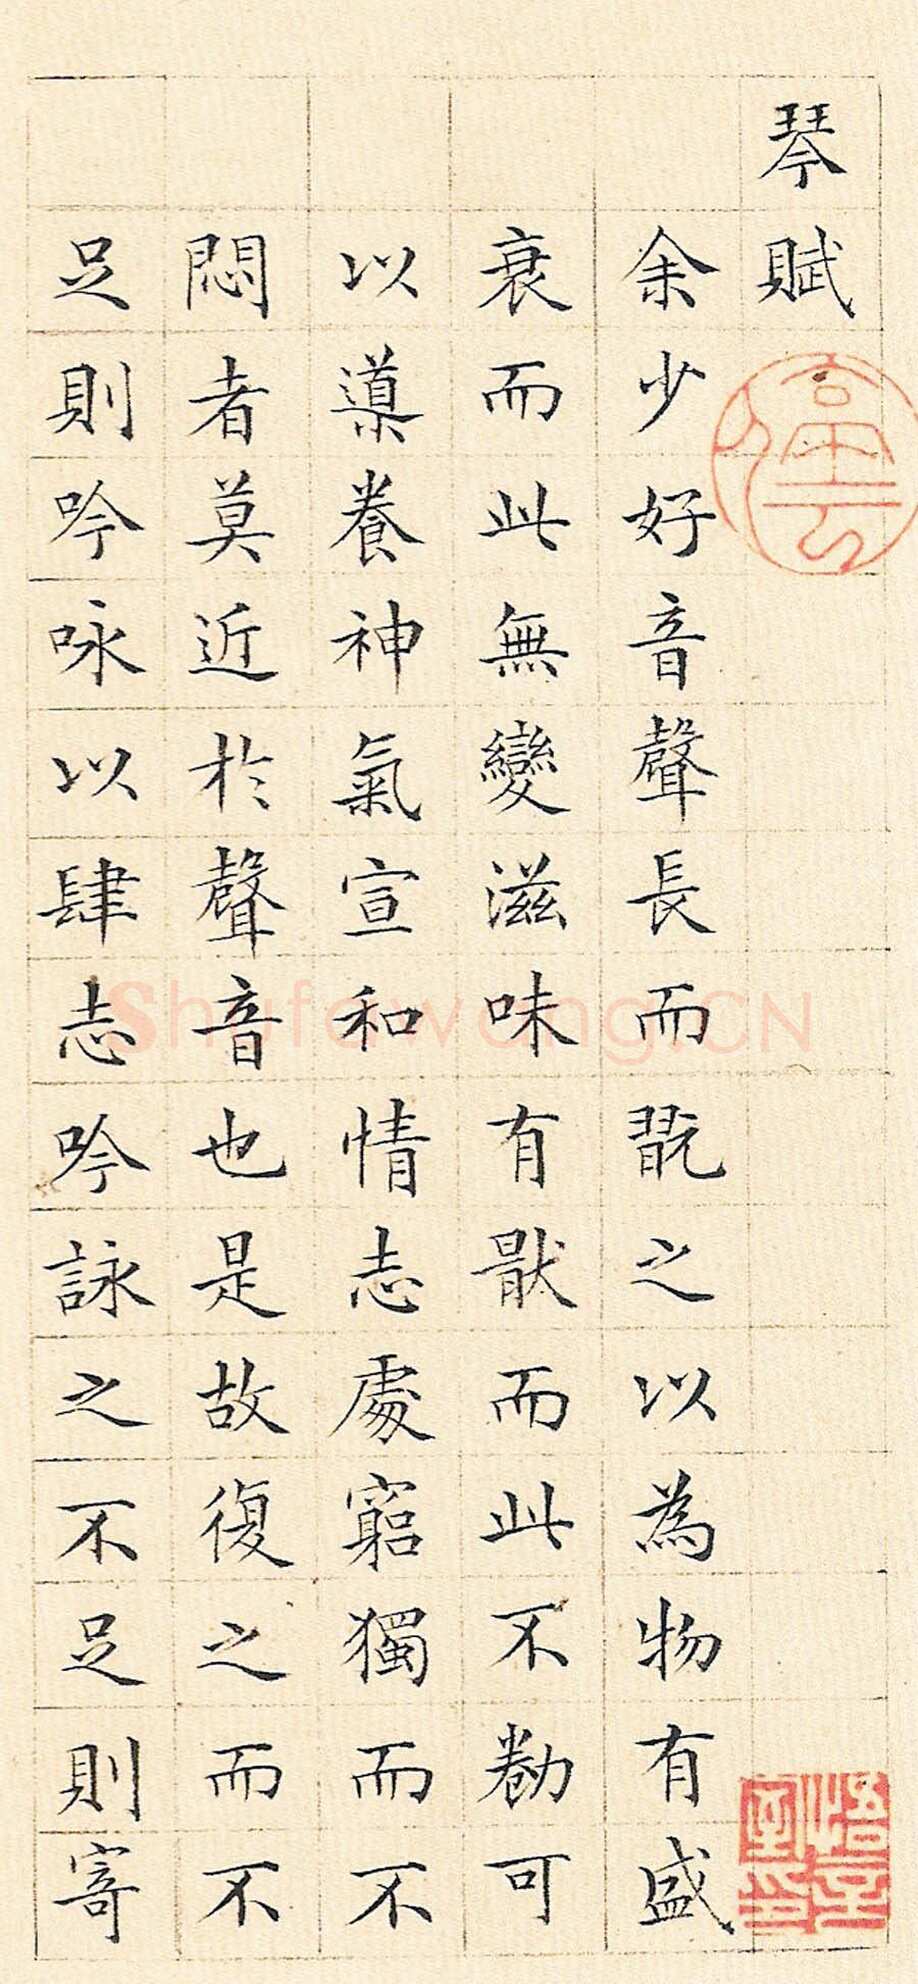 琴賦
余少好音聲長而翫之以為物有盛
衰而此無變滋味有猒而此不勌可
以導養神氣宣和情志處窮獨而不
悶者莫近於聲音也是故復之而不
足則吟咏以肆志吟詠之不足則寄
Shufawang.CN